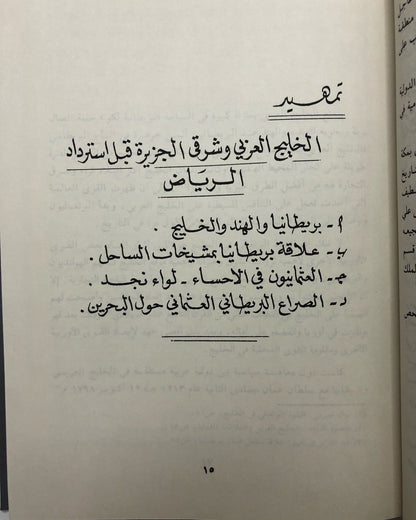 تمهيد
الخليج العربي وشرقي الجزيرة قبل استرداد
الرياض
أ - بريطانيا والهند والخليج .
ب - علاقة بريطانيا بمشيخات الساحل .
ج - العثمانيون في الاحساء - لواء نجد .
د - الصراع البريطاني العثماني حول البحرين .
١٥